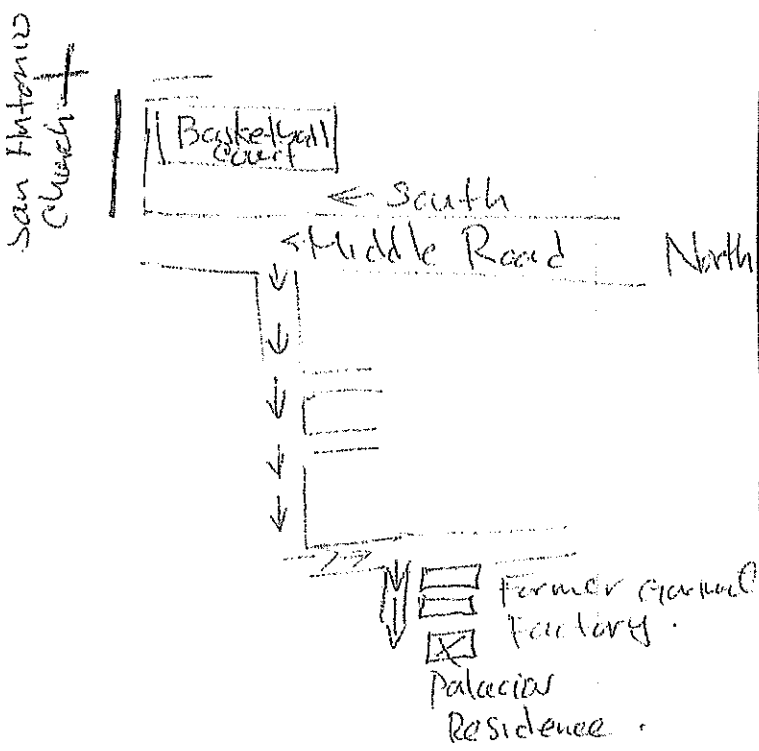 San Antonio
Church
Basketball
Court
← South
< Middle Road
North
Former
Factory.
Palacios
Residence.